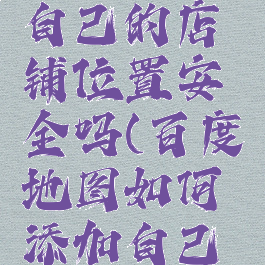 自己的店
铺位置安
全吗(百度
地图如何
添加自己